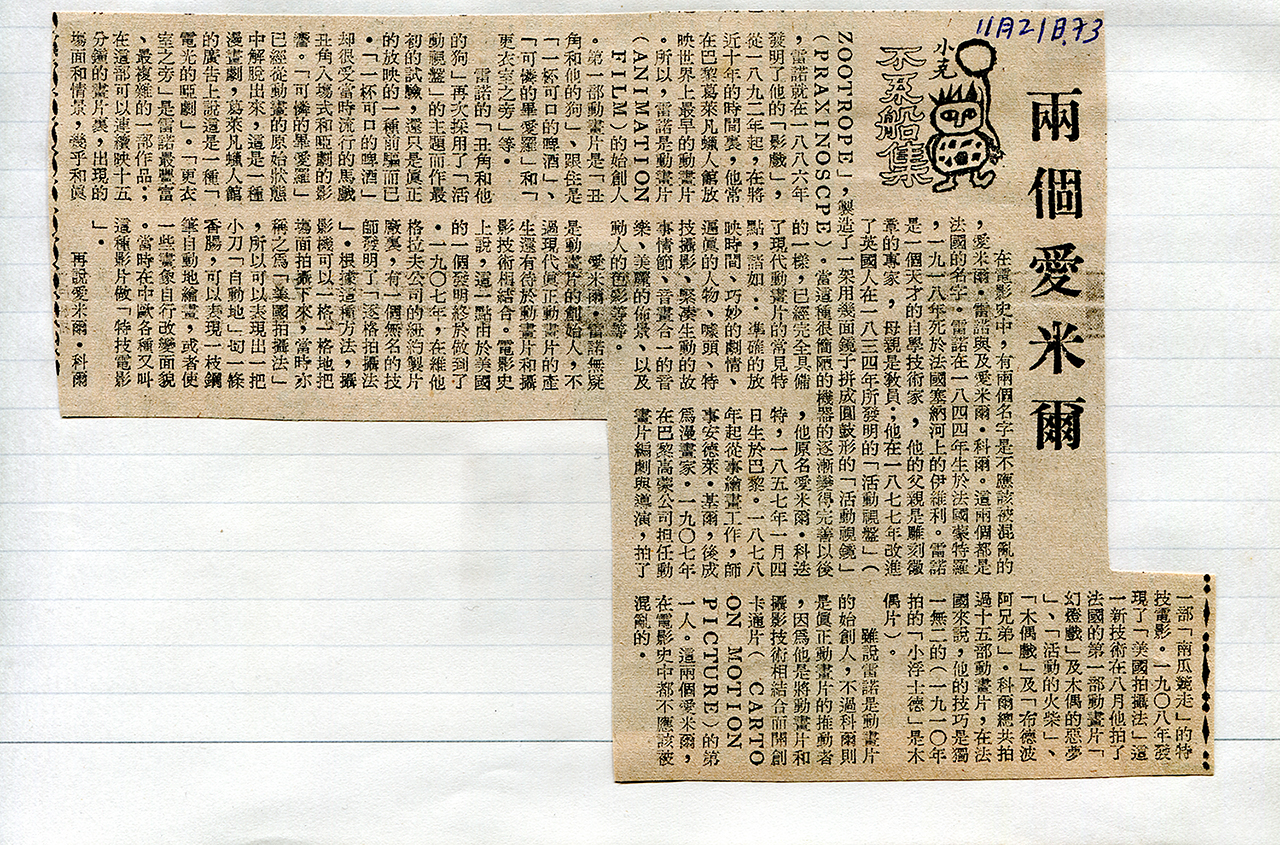 11月21日.73
兩個愛米爾
小克
不系船集
在電影史中,有兩個名字是不應該被混亂的
,愛米爾·雷諾與及愛米爾·科爾。這兩個都是
法國的名字。雷諾在一八四四年生於法國蒙特羅
,一九一八年死於法國塞納河上的伊維利。雷諾
是一個天才的自學技術家,他的父親是雕刻徽
章的專家,母親是教員;他在一八七七年改進
了英國人在一八三四年所發明的「活動視盤」(
ZOOTROPE」,製造了一架用幾面鏡子拼成圓鼓形的「活動視鏡」
(PRAXINOSCPE)。當這種很簡陋的機器的逐漸變得完善以後
,雷諾就在一八八六年
發明了他的「影戲」,
從一八九二年起,在將
近十年的時間裏,他常
在巴黎葛萊凡蠟人館放
映世界上最早的動畫片
。所以,雷諾是動畫片
(ANIMATION
FILM)的始創人
。第一部動畫片是「丑
角和他的狗」、跟住是
「一杯可口的啤酒」、
「可憐的畢愛羅」和「
更衣室之旁」等。
雷諾的「丑角和他
的狗」再次採用了「活
動視盤」的主題而作最
初的試驗,還只是眞正
的放映的一種前驅而已
。「一杯可口的啤酒」
却很受當時流行的馬戲
丑角入塲式和啞劇的影
響。「可憐的畢愛羅」
已經從動畫的原始狀態
中解脫出來,這是一種
漫畫劇,葛萊凡蠟人館
的廣告上說這是一種「
電光的啞劇」。「更衣
室之旁」是雷諾最豐富
、最複雜的一部作品;
在這部可以連續映十五
分鐘的畫片裏,出現的
塲面和情景,幾乎和眞
的一樣,已經完全具備
了現代動畫片的常見特
點,諸如:準確的放
映時間、巧妙的劇情、
逼眞的人物、噱頭、特
技攝影、緊凑生動的故
事情節、音畫合一的音
樂、美麗的佈景、以及
動人的色彩等等。
愛米爾·雷諾無疑
是動畫片的創始人,不
過現代眞正動畫片的產
生還有待於動畫片和攝
影技術相結合。電影史
上說,這一點由於美國
的一個發明終於做到了
。一九〇七年,在維他
格拉夫公司的紐約製片
廠裏,有一個無名的技
師發明了「逐格拍攝法
」。根據這種方法,攝
影機可以一格、一格地把
塲面拍攝下來,當時亦
稱之爲「美國拍攝法」
,所以可以表現出一把
小刀「自動地」切一條
香腸,可以表現一枝鋼
筆自動地繪畫,或者使
一些畫象自行改變面貌
。當時在中歐各種又叫
這種影片做「特技電影
」。
再說愛米爾·科爾
,他原名愛米爾·科迭
特,一八五七年一月四
日生於巴黎。一八七八
年起從事繪畫工作,師
事安德萊·基爾,後成
爲漫畫家。一九〇七年
在巴黎高蒙公司担任動
畫片編劇與導演,拍了
一部「南瓜競走」的特
技電影。一九〇八年發
現了「美國拍攝法」這
一新技術在八月他拍了
法國的第一部動畫片「
幻燈戲」及木偶的惡夢
」、「活動的火柴」、
「木偶戲」及「布德波
阿兄弟」。科爾總共拍
過十五部動畫片,在法
國來說,他的技巧是獨
一無二的(一九一〇年
拍的「小浮士德」是木
偶片)。
雖說雷諾是動畫片
的始創人,不過科爾則
是眞正動畫片的推動者
,因爲他是將動畫片和
攝影技術相結合而開創
卡通片( CARTO
ON MOTION
PICTURE)的第
一人。這兩個愛米爾,
在電影史中都不應該被
混亂的。